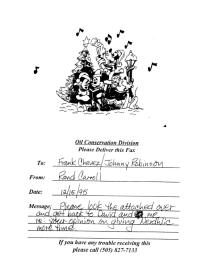 Oil Conservation Division
Please Deliver this Fax
To: Frank Chavez/Johnny Robinson
From: Rand Carroll
Date: 12/15/95
Message: Please look the attached over
and get back to David and me
re: your opinion on giving Merrion
more time!
If you have any trouble receiving this
please call (505) 827-7133